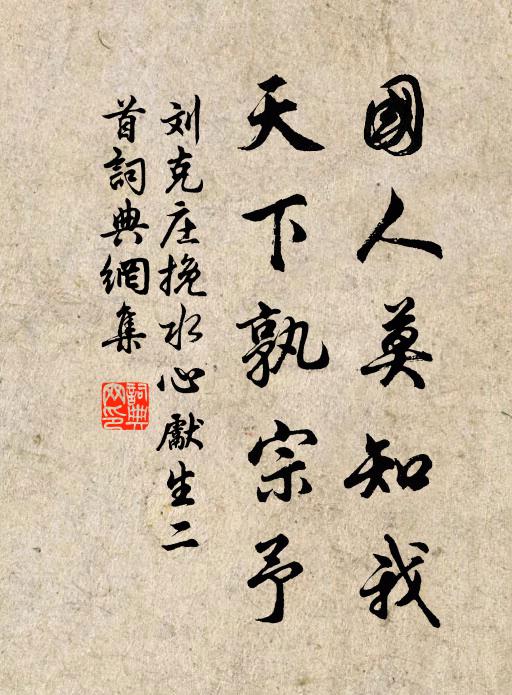 國人莫知我
天下孰宗予
刘克庄挽水心獻生二
首詞典網集
詞典
网印